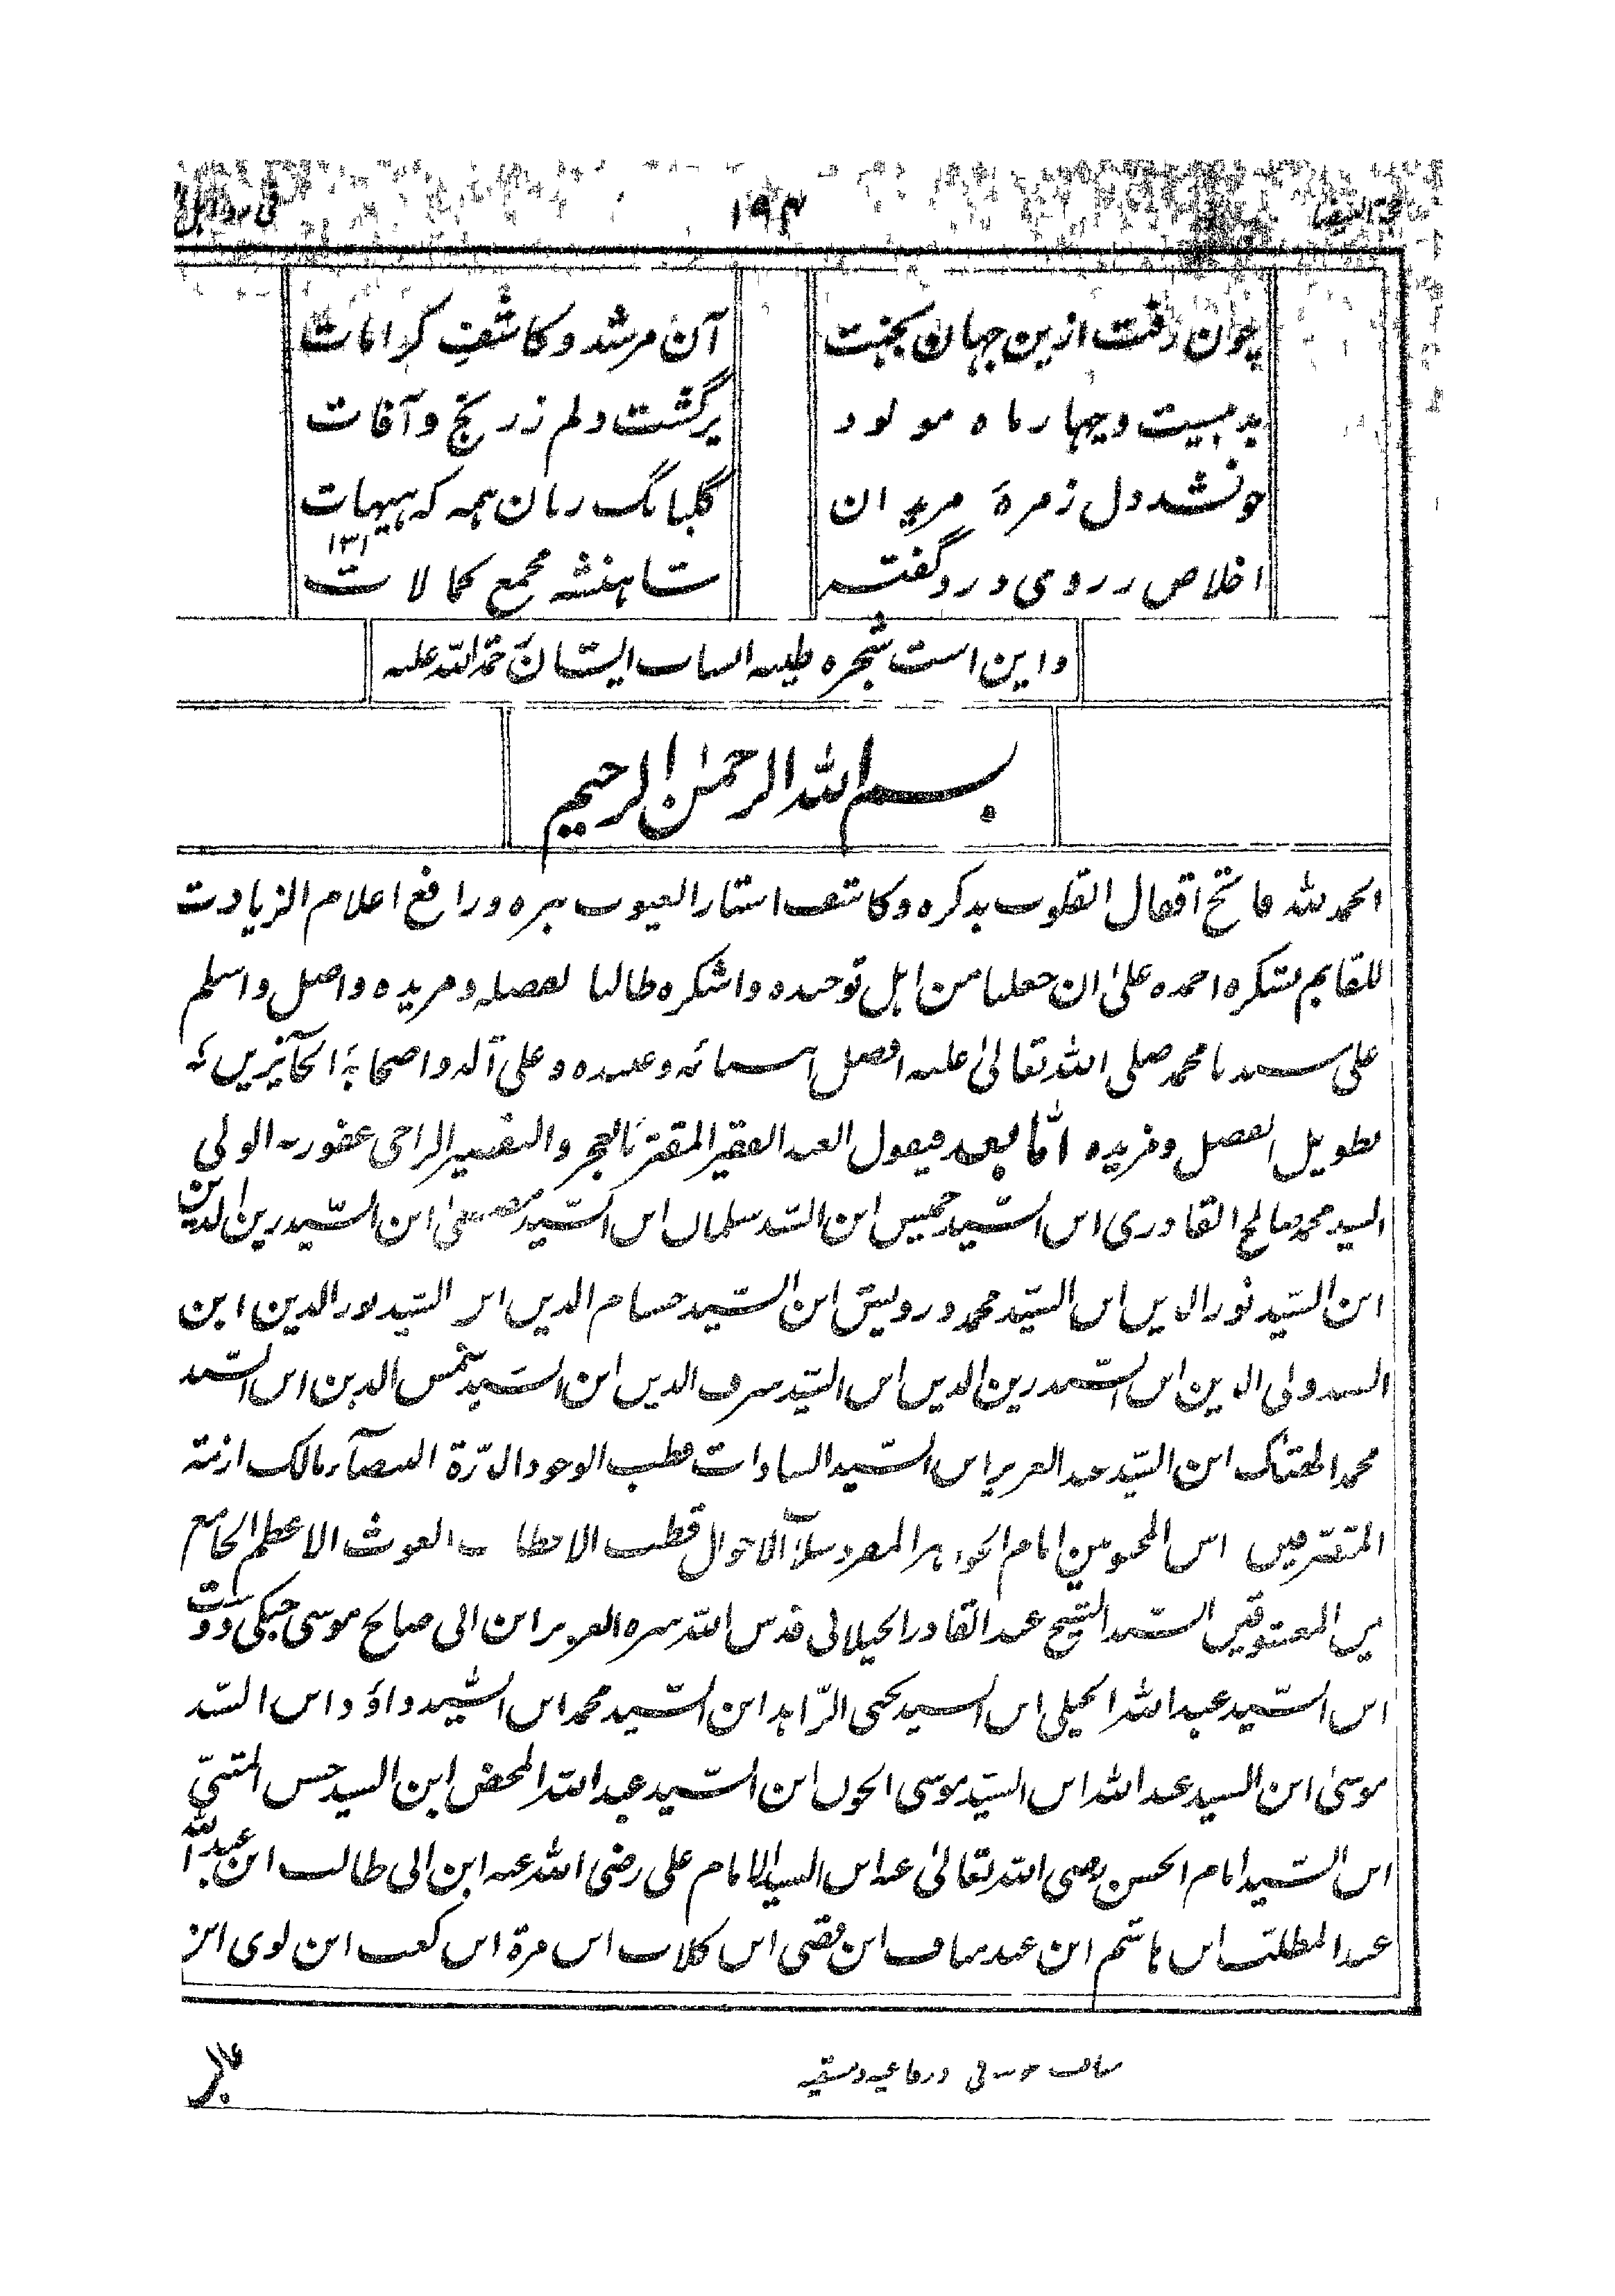 ۱۹۴
چوان رفت ازین جهان بجنت
آن مرشد و کاشف کرامات
بد بیست و چهار ماه مولود
برگشت دلم ز رنج و آفات
خونشد دل زمرۀ مریدان
گلبانگ زنان همه که هیهات
اخلاص ز روی درد گفته
شاهنشه مجمع کمالات
واین است شجره طیبه انساب ایشان رحمة الله علیه
بسم الله الرحمٰن الرحیم
الحمد لله فاتح اقفال القلوب بذکره وکاشف استار العیوب ببره ورافع اعلام الزیادت
للقایم بشکره احمده علیٰ ان جعلنا من اهل توحیده واشکره طالبا لفضله ومزیده واصلی واسلم
علی سیدنا محمد صلی الله تعالیٰ علیه افضل اسمائه وعبیده وعلی آله واصحابه
بطویل الفضل وفریده امّا بعد فیقول العبد الفقیر المقتر بالعجز والتقصیر الراجی عفو ربه الولی
السید محمد صالح القادری ابن السّید خمیس ابن السّید سلیمان ابن السّید مصطفیٰ ابن السّید زین الدین
ابن السّید نور الدین ابن السّید محمد درویش ابن السّید حسام الدین ابن السّید نور الدین ابن
السید ولی الدین ابن السّید زین الدین ابن السّید شرف الدین ابن السّید شمس الدین ابن السّید
محمد الهتاک ابن السّید عبد العزیز ابن السّید السادات قطب الوجود الدّرة البیضآء مالک ازمة
المتصرفین قطب الاقطاب الغوث الاعظم الجامع
بین المعشوقین السّید الشیخ عبد القادر الجیلانی قدس الله سره العزیز ابن ابی صالح موسی جنگی دوست
ابن السّید عبد الله الجیلی ابن السید یحیی الزّاهد ابن السّید محمد ابن السّید داؤد ابن السّید
موسیٰ ابن السید عبد الله ابن السّید موسی الجون ابن السّید عبد الله المحض ابن السید حسن المثنیّ
ابن السّید امام الحسن رضی الله تعالیٰ عنه ابن السید الامام علی رضی الله عنه ابن ابی طالب ابن
عبد المطلب ابن هاشم ابن عبد مناف ابن قصی ابن کلاب ابن مرة ابن کعب ابن لوی ابن